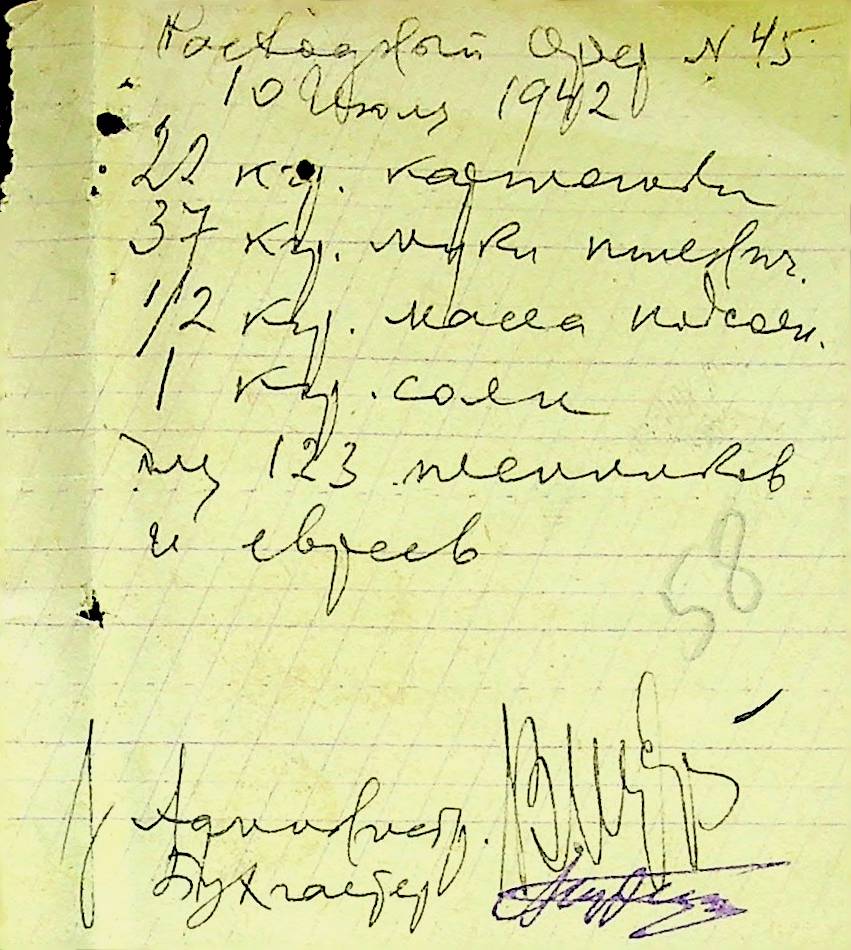 Расходный Ордер N 45
10 Июля 1942
22 кгр. картошки
37 кгр. муки пшенич.
1/2 кгр. масла подсолн.
1 кгр. соли
для 123 пленников
и евреев
58
Администр.
Бухгалтер